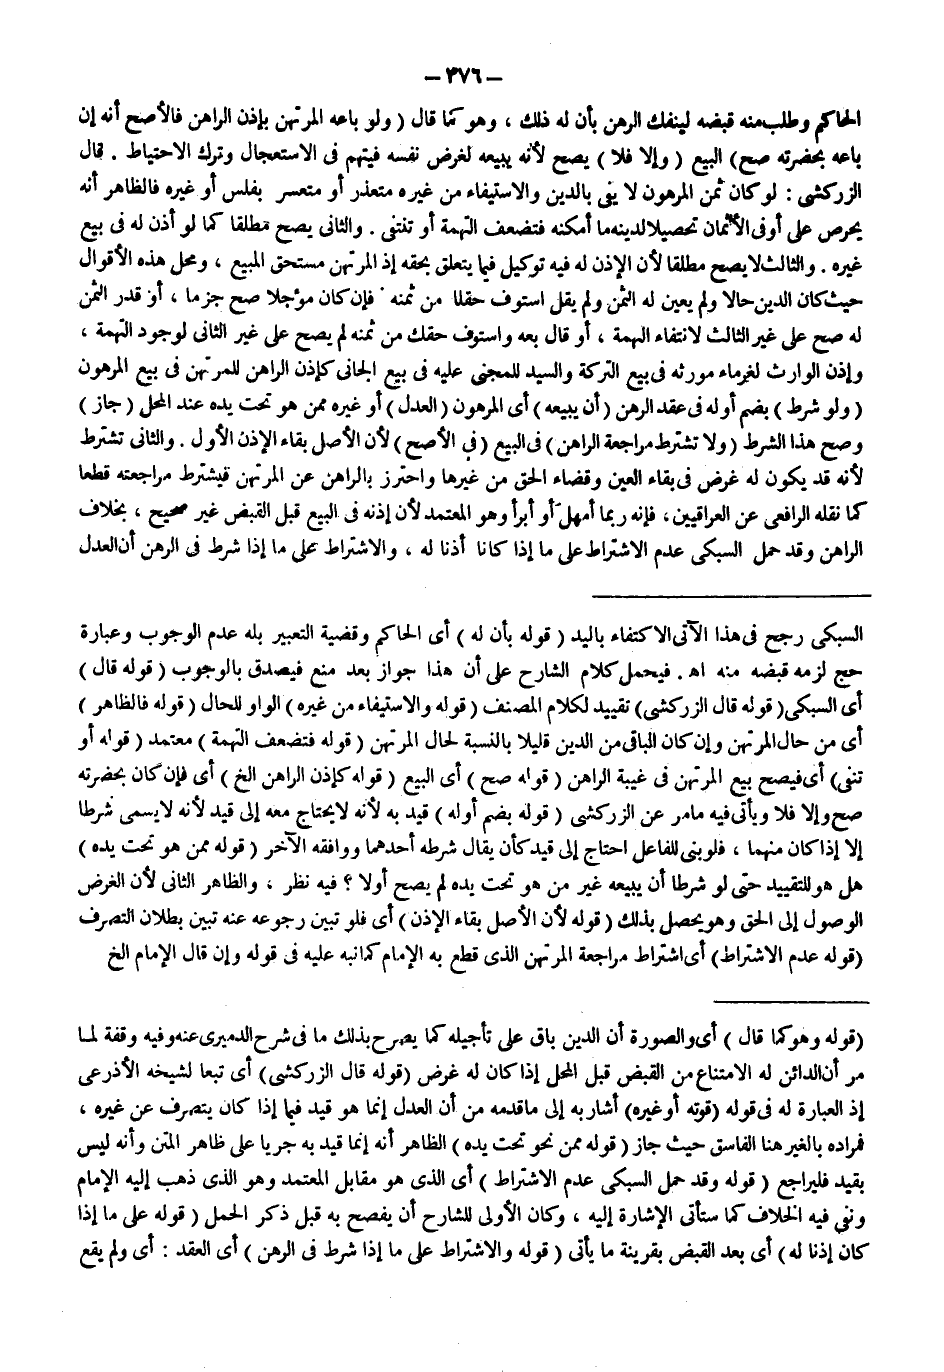 – ٣٧٦ –
الحاكم وطلب منه قبضه لينفك الرهن بأن له ذلك ، وهو كما قال ( ولو باعه المرتهن بإذن الراهن فالأصح أنه إن
باعه بحضرته صح) البيع ( وإلا فلا ) يصح لأنه يبيعه لغرض نفسه فيتهم فى الاستعجال وترك الاحتياط . قال
الزركشى : لو كان ثمن المرهون لا يفى بالدين والاستيفاء من غيره متعذر أو متعسر بفلس أو غيره فالظاهر أنه
يحرص على أوفى الأثمان تحصيلا لدينه ما أمكنه فتضعف التهمة أو تنتفى . والثانى يصح مطلقا كما لو أذن له فى بيع
غيره . والثالث لا يصح مطلقا لأن الإذن له فيه توكيل فيما يتعلق بحقه إذ المرتهن مستحق المبيع ، ومحل هذه الأقوال
حيث كان الدين حالا ولم يعين له الثمن ولم يقل استوف حقك من ثمنه فإن كان مؤجلا صح جزما ، أو قدر الثمن
له صح على غير الثالث لانتفاء التهمة ، أو قال بعه واستوف حقك من ثمنه لم يصح على غير الثانى لوجود التهمة ،
وإذن الوارث لغرماء مورثه فى بيع التركة والسيد للمجنى عليه فى بيع الجانى كإذن الراهن للمرتهن فى بيع المرهون
( ولو شرط ) بضم أوله فى عقد الرهن ( أن يبيعه ) أى المرهون ( العدل ) أو غيره ممن هو تحت يده عند المحل ( جاز )
وصح هذا الشرط ( ولا تشترط مراجعة الراهن ) فى البيع ( فى الأصح ) لأن الأصل بقاء الإذن الأول . والثانى تشترط
لأنه قد يكون له غرض فى بقاء العين وقضاء الحق من غيرها واحترز بالراهن عن المرتهن فيشترط مراجعته قطعا
كما نقله الرافعى عن العراقيين، فإنه ربما أمهل أو أبرأ وهو المعتمد لأن إذنه فى البيع قبل القبض غير صحيح ، بخلاف
الراهن وقد حمل السبكى عدم الاشتراط على ما إذا كانا أذنا له ، والاشتراط على ما إذا شرط فى الرهن أن العدل
السبكى رجح فى هذا الآتى الاكتفاء باليد ( قوله بأن له ) أى الحاكم وقضية التعبير بله عدم الوجوب وعبارة
حج لزمه قبضه منه اهـ . فيحمل كلام الشارح على أن هذا جواز بعد منع فيصدق بالوجوب ( قوله قال )
أى السبكى( قوله قال الزركشى) تقييد لكلام المصنف ( قوله والاستيفاء من غيره ) الواو للحال ( قوله فالظاهر )
أى من حال المرتهن وإن كان الباقى من الدين قليلا بالنسبة لحال المرتهن ( قوله فتضعف التهمة ) معتمد ( قوله أو
تنتفى) أى فيصح بيع المرتهن فى غيبة الراهن ( قوله صح ) أى البيع ( قوله كإذن الراهن الخ ) أى فإن كان بحضرته
صح وإلا فلا ويأتى فيه مامر عن الزركشى ( قوله بضم أوله ) قيد به لأنه لا يحتاج معه إلى قيد لأنه لا يسمى شرطا
إلا إذا كان منهما ، فلو بنى للفاعل احتاج إلى قيد كأن يقال شرطه أحدهما ووافقه الآخر ( قوله ممن هو تحت يده )
هل هو للتقييد حتى لو شرطا أن يبيعه غير من هو تحت يده لم يصح أولا ؟ فيه نظر ، والظاهر الثانى لأن الغرض
الوصول إلى الحق وهو يحصل بذلك ( قوله لأن الأصل بقاء الإذن ) أى فلو تبين رجوعه عنه تبين بطلان التصرف
(قوله عدم الاشتراط) أى اشتراط مراجعة المرتهن الذى قطع به الإمام كما نبه عليه فى قوله وإن قال الإمام الخ
(قوله وهو كما قال ) أى والصورة أن الدين باق على تأجيله كما يصرح بذلك ما فى شرح الدميرى عنه وفيه وقفة لما
مر أن الدائن له الامتناع من القبض قبل المحل إذا كان له غرض (قوله قال الزركشى) أى تبعا لشيخه الأذرعى
إذ العبارة له فى قوته (قوله أو غيره) أشار به إلى ما قدمه من أن العدل إنما هو قيد فيما إذا كان يتصرف عن غيره ،
فمراده بالغير هنا الفاسق حيث جاز ( قوله ممن نحو تحت يده ) الظاهر أنه إنما قيد به جريا على ظاهر المتن وأنه ليس
بقيد فليراجع ( قوله وقد حمل السبكى عدم الاشتراط ) أى الذى هو مقابل المعتمد وهو الذى ذهب إليه الإمام
ونفى فيه الخلاف كما ستأتى الإشارة إليه ، وكان الأولى للشارح أن يفصح به قبل ذكر الحمل ( قوله على ما إذا
كان إذنا له ) أى بعد القبض بقرينة ما يأتى ( قوله والاشتراط على ما إذا شرط فى الرهن ) أى العقد : أى ولم يقع